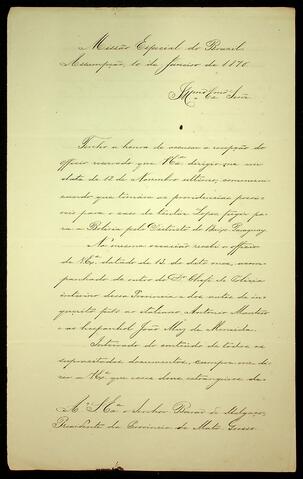 Missão Especial do Brasil
Assumpção, 10 de Janeiro de 1870.
Illmo. Exmo. Senr.
Tenho a honra de accusar a recepção do
officio reservado que V.Exa. dirigio-me em
data de 12 de Novembro ultimo, communi-
cando que tomára as providencias possi-
veis para o caso de tentar Lopez fugir pa-
ra a Bolivia pelo Districto do Baixo Paraguay.
Na mesma occasião recebi o officio
de V.Exa. datado de 13 do dito mez, acom-
panhado de outro do Dr. Chefe de Policia
interino dessa Provincia e dos autos de in-
querito feito ao italiano Antonio
e ao hespanhol João de
Inteirado do conteúdo de todos os
supracitados documentos, cumpre-me di-
zer a V.Exa. que esses dous estrangeiros de-
A S.Exa. o Senhor Barão de Melgaço,
Presidente da Provincia de Mato Grosso